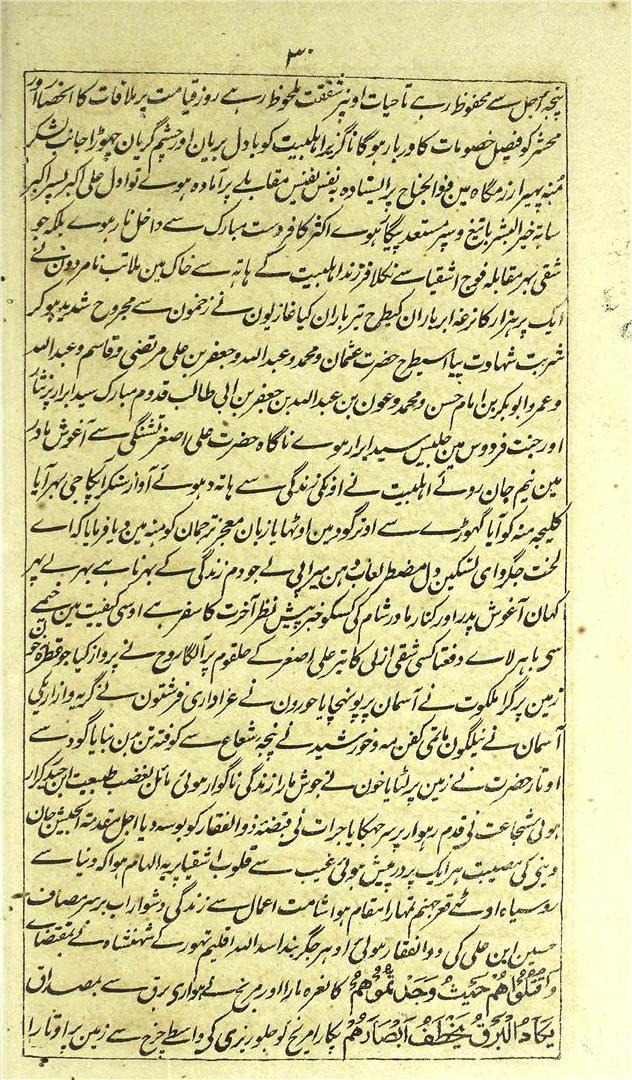 ۳۰
پنجۂ اجل سے محفوظ رہے تاحیات اونپر شفقت ملحوظ رہے روز قیامت پر ملاقات کا انحصار اور
محشر کو فیصل خصومات کا دربار ہوگا ناگزیر اہلبیت کو بادل بریان اور چشم گریان چھوڑا جانب لشکر
منہ پہیرا رزمگاہ مین ذوالجناح پر ایستادہ بنفس نفیس مقابلے پر آمادہ ہوے تو اول علی اکبر پسر اکبر
ساتہ خیر البشر باتیغ و سپر مستعد پیکار ہوے اکثر کافر دست مبارک سے داخل نار ہوے بلکہ جو
شقی بہر مقابلہ فوج اشقیا سے نکلا فرزند اہلبیت کے ہاتہ سے خاک مین ملا تب نامردون نے
ایک پر ہزار کا نرغہ ابر باران کیطرح تیر باران کیا غازیون نے زخمون سے مجروح شدید ہوکر
شربت شہادت پیا اسیطرح حضرت عثمان و محمد و عبد اللہ و جعفر بن علی مرتضی و قاسم و عبد اللہ
و عمر و ابوبکر بن امام حسن و محمد و عون بن عبد اللہ بن جعفر بن ابی طالب قدوم مبارک سید ابرار پر نثار
اور جنت فردوس مین جلیس سید ابرار ہوے ناگاہ حضرت علی اصغر تشنگی سے آغوش مادر
مین نیم جان روئے اہلبیت نے اونکی زندگی سے ہاتہ دہوئے آواز سنکر آپکا جی بہر آیا
کلیجہ منہ کو آیا گھوڑے سے اوتر گود مین اوٹھایا زبان معجز ترجمان کو منہ مین دیا فرمایا کہ اے
لخت جگر وای تسکین دل مضطر لعاب دہن میرا پی لے جو دم زندگی کے بہرنا ہے بہر لے پہر
کہان آغوش پدر اور کنار مادر شام کی کسکو خبر پیش نظر آخرت کا سفر ہے اوسی کیفیت مین خیمے
سی باہر لاے دفعتا کسی شقی ازلی کا تیر علی اصغر کے حلقوم پر آلگا روح نے پرواز کیا جو قطرہ خون
زمین پر گرا ملکوت نے آسمان پر پونہچایا حورون نے عزاداری فرشتون نے گریہ و زاری کی
آسمان نے نیلگون ماتمی کفن مہ و خورشید نے پنجہ شعاع سے کوفتہ تن بدن بنایا گود سے
اوتار حضرت نے زمین پر لٹایا خون نے جوش مارا زندگی ناگوار ہوئی مائل بغضب طبیعت ابن حیدر کرار
ہوئی شجاعت نی قدم رہوار پر سر جہکایا جرات نی قبضۂ ذوالفقار کو بوسہ دیا اجل مقدمۃ الجیش جان
دینی کی مصیبت ہر ایک پر درپیش ہوئی غیب سے قلوب اشقیا پر یہ الہام ہوا کہ دنیا سے
روسیاہ اوٹھے قعر جہنم تمہارا مقام ہوا شامت اعمال سے زندگی دشوار اب برسر مصاف
حسین ابن علی کی ذوالفقار ہوئی اوہر جگربند اسد اللہ اقلیم تہور کے شہنشاہ نے بمقتضاے
وَاقْتُلُوْاهُمْ حَیْثُ وَجَدْتُمُوْهُمْ کا نعرہ مارا اور مریخ نے ہواری برق سے بمصداق
یَکَادُ الْبَرْقُ یَخْطَفُ اَبْصَارَهُمْ پکارا مریخ کو جلوریزی کی واسطے چرخ سے زمین پر اوتارا